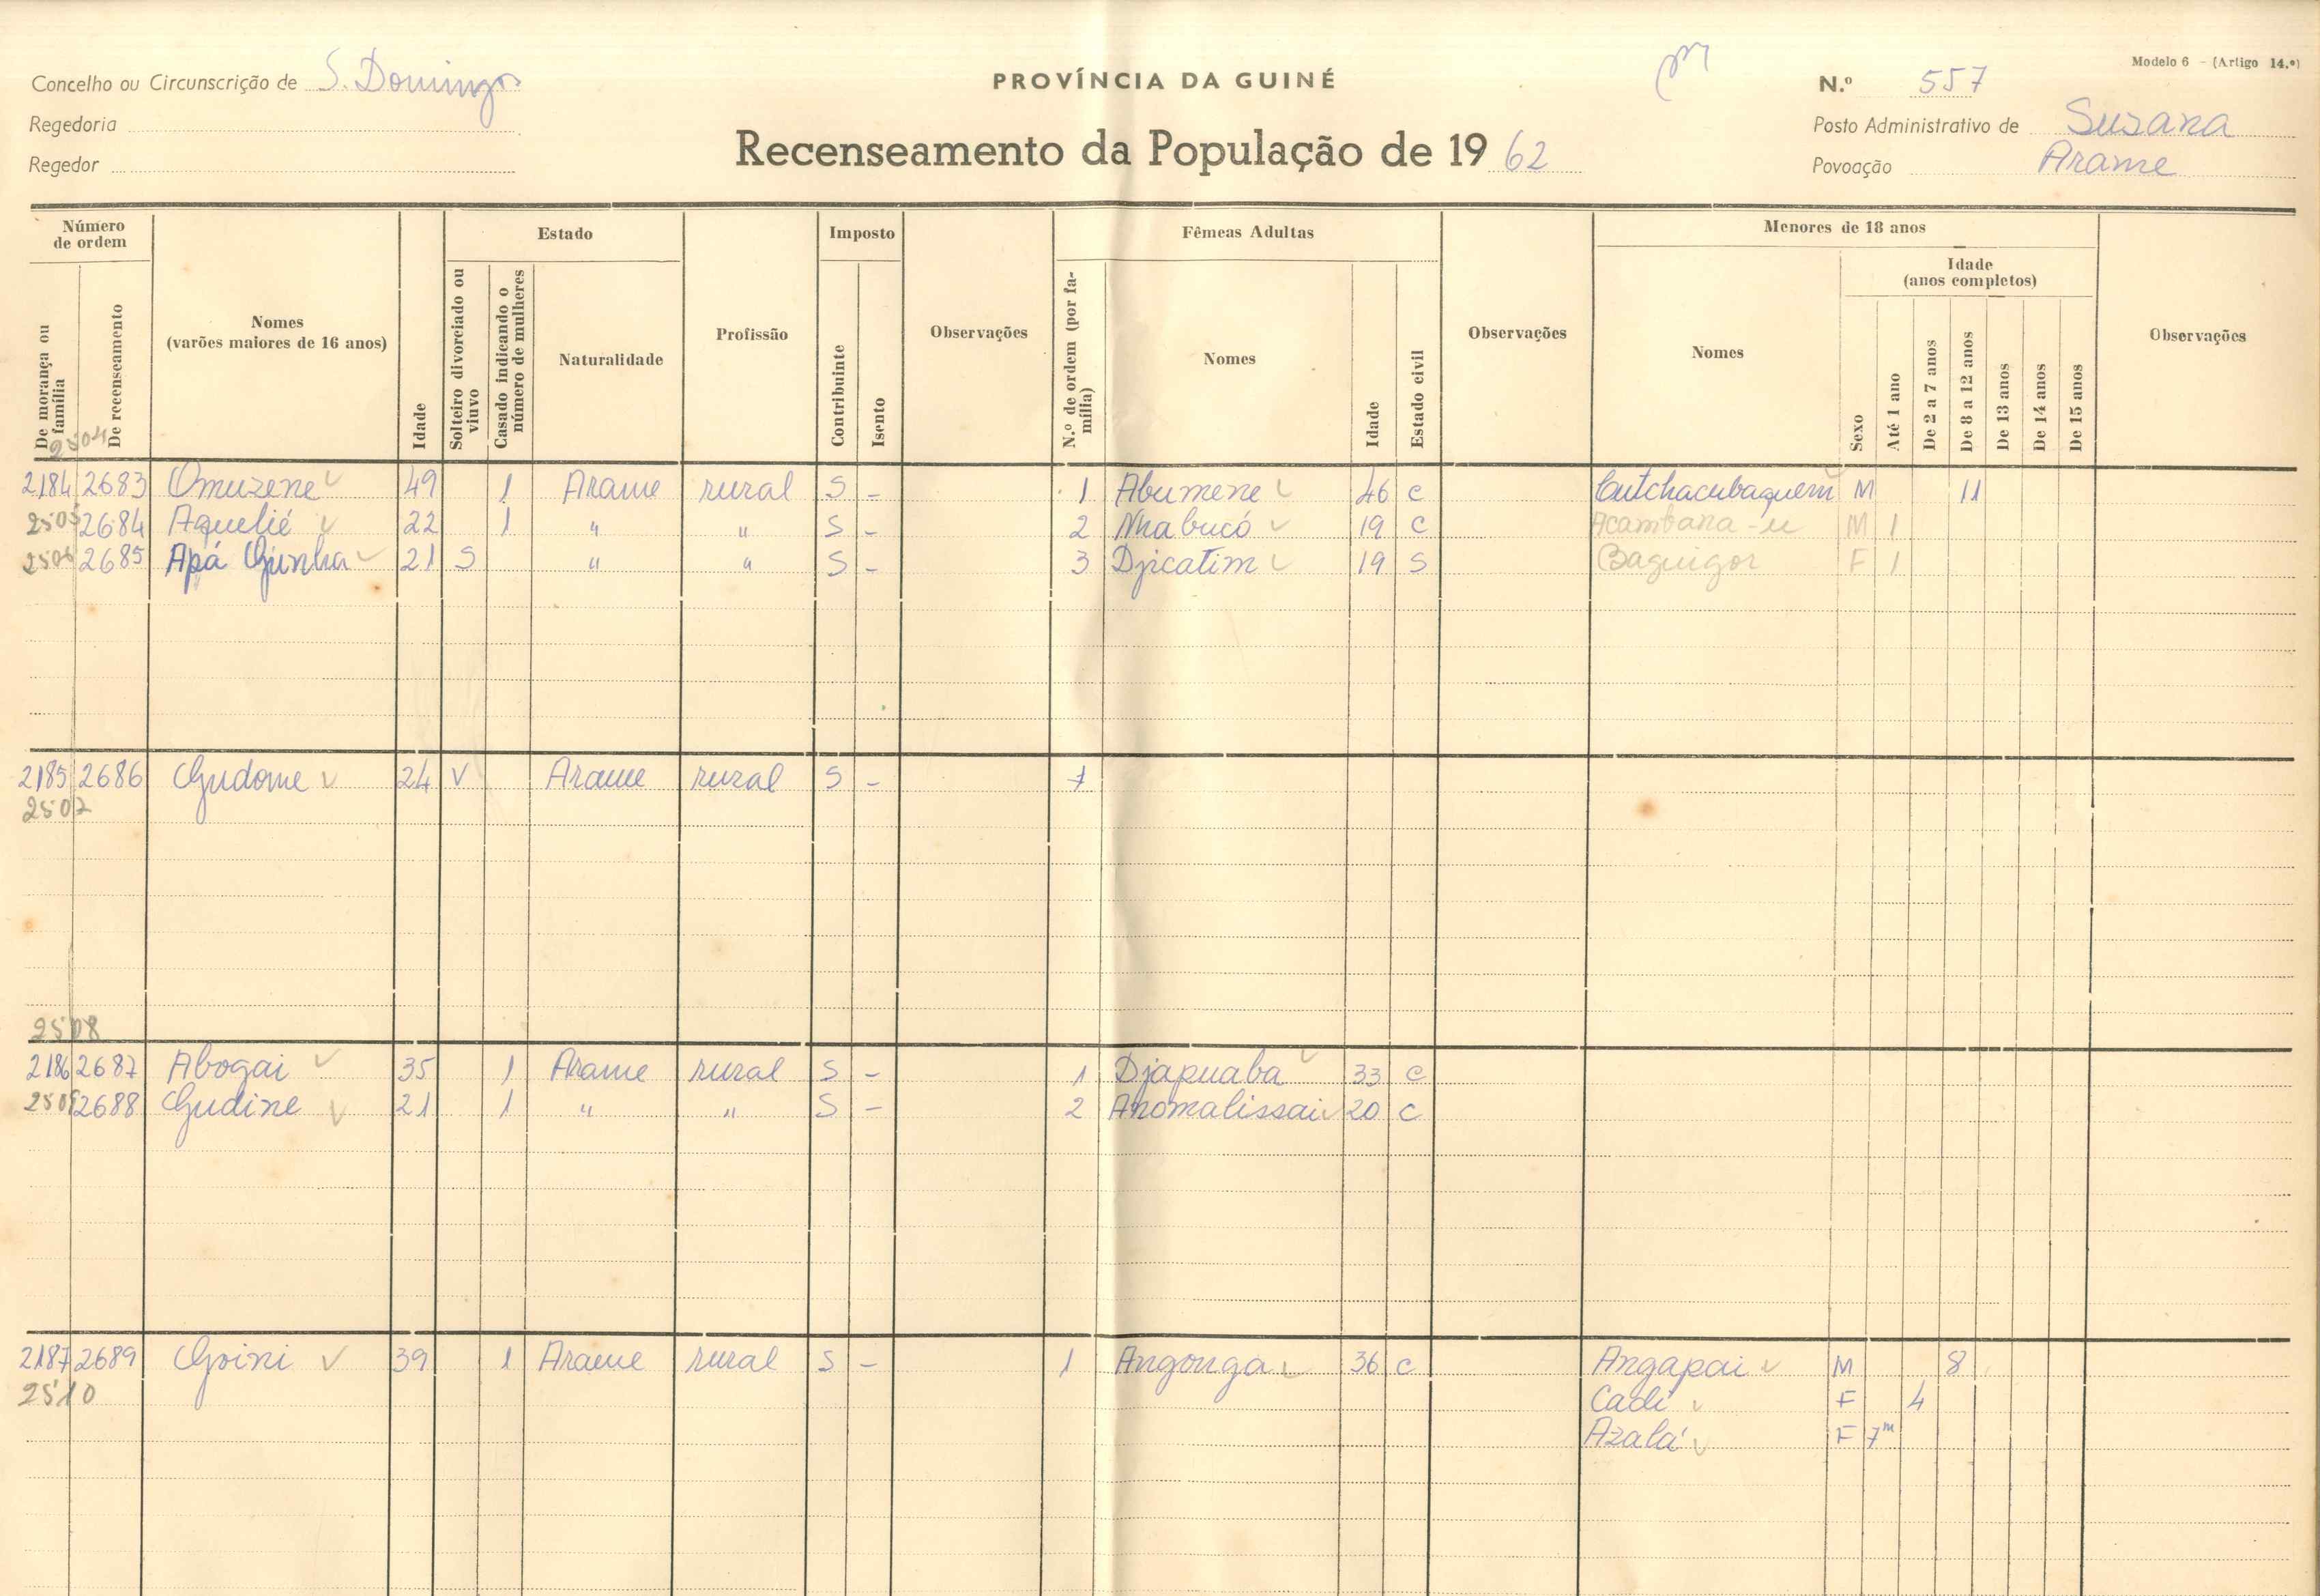 Modelo 6 - (Artigo 14.º)
Concelho ou Circunscrição de S. Domingos
PROVÍNCIA DA GUINÉ
N.º 557
Regedoria
Posto Administrativo de Suzana
Regedor
Recenseamento da População de 1962
Povoação Arame
Número de ordem
De morança ou família
De recenseamento
Nomes (varões maiores de 16 anos)
Idade
Estado
Solteiro divorciado ou viuvo
Casado indicando o número de mulheres
Naturalidade
Profissão
Imposto
Contribuinte
Isento
Observações
Fêmeas Adultas
N.º de ordem (por família)
Nomes
Idade
Estado civil
Observações
Menores de 18 anos
Nomes
Sexo
Idade (anos completos)
Até 1 ano
De 2 a 7 anos
De 8 a 12 anos
De 13 anos
De 14 anos
De 15 anos
Observações
2504
2184 2683 Omuzene 49 1 Arame rural S - 1 Abumene 46 C Cutchacubaquem M 11
2505 2684 Aquelié 22 1 " " S - 2 Nhabucó 19 C Acambana-u M 1
2506 2685 Apá Gjinha 21 S " " S - 3 Djicatim 19 S Baguigor F 1
2185 2686 Gudome 24 V Arame rural S -
2507
2508
2186 2687 Abogai 35 1 Arame rural S - 1 Djapuaba 33 C
2509 2688 Gudine 21 1 " " S - 2 Anomalissai 20 C
2187 2689 Goini 39 1 Arame rural S - 1 Angonga 36 C Angapai M 8
2510 Cadi F 4
Azalá F 7m